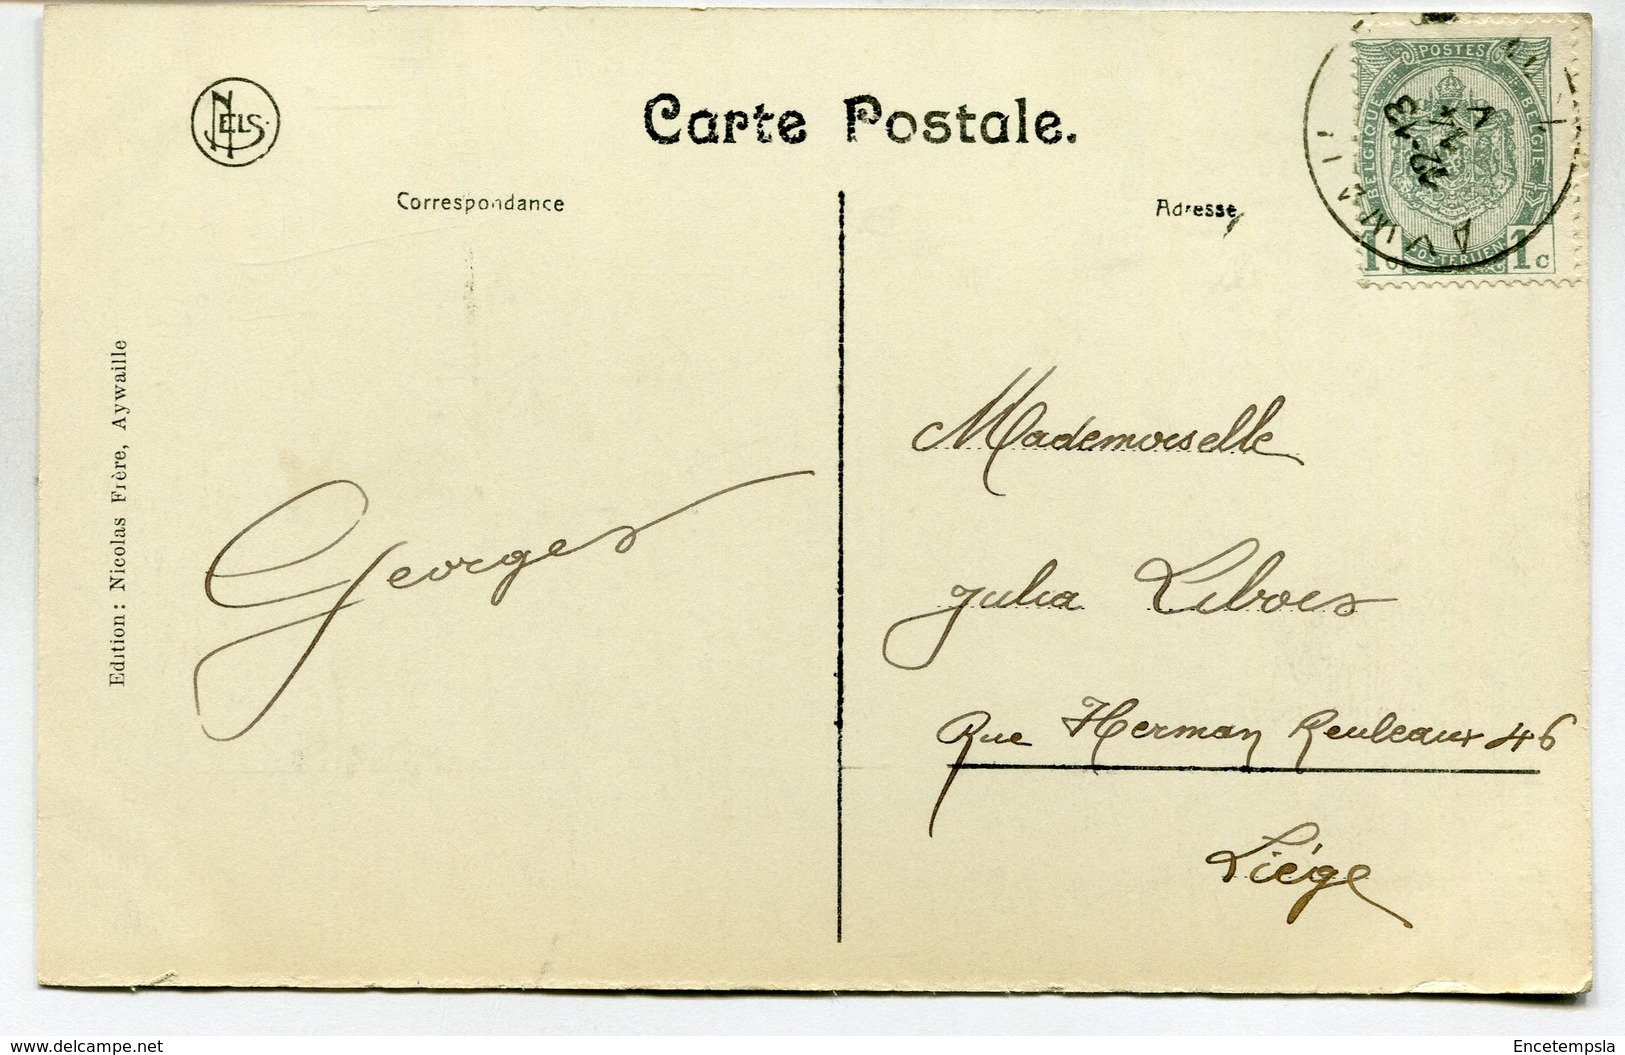 NELS
Carte Postale.
Correspondance
Adresse
POSTES
BELGIQUE
BELGIE
POSTERIJEN
1c 1c
12-13
Edition: Nicolas Frère, Aywaille
Georges
Mademoiselle
Julia Libois
Rue Herman Reuleaux 46
Liége
www.delcampe.net
Encetempsla